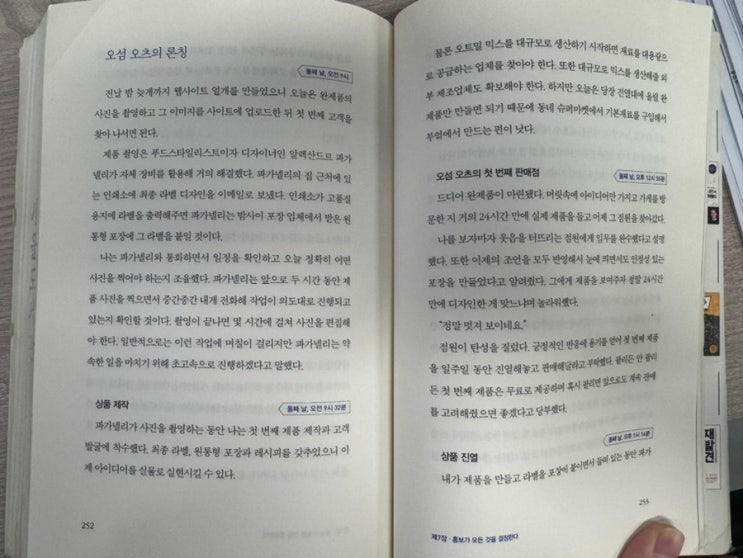 오섬 오츠의 론칭
둘째 날, 오전 9시
전날 밤 늦게까지 웹사이트 얼개를 만들었으니 오늘은 완제품의
사진을 촬영하고 그 이미지를 사이트에 업로드한 뒤 첫 번째 고객을
찾아 나서면 된다.
제품 촬영은 푸드스타일리스트이자 디자이너인 알렉산드르 파가
넬리가 자체 장비를 활용해 거의 해결했다. 파가넬리의 집 근처에 있
는 인쇄소에 최종 라벨 디자인을 이메일로 보냈다. 인쇄소가 고품질
용지에 라벨을 출력해주면 파가넬리는 밤사이 포장 업체에서 받은 원
통형 포장에 그 라벨을 붙일 것이다.
나는 파가넬리와 통화하면서 일정을 확인하고 오늘 정확히 어떤
사진을 찍어야 하는지 조율했다. 파가넬리는 앞으로 두 시간 동안 제
품 사진을 찍으면서 중간중간 내게 전화해 작업이 의도대로 진행되고
있는지 확인할 것이다. 촬영이 끝나면 몇 시간에 걸쳐 사진을 편집해
야 한다. 일반적으로는 이런 작업에 며칠이 걸리지만 파가넬리는 약
속한 일을 마치기 위해 초고속으로 진행하겠다고 말했다.
상품 제작
둘째 날, 오전 9시 32분
파가넬리가 사진을 촬영하는 동안 나는 첫 번째 제품 제작과 고객
발굴에 착수했다. 최종 라벨, 원통형 포장과 레시피를 갖추었으니 이
제 아이디어를 실물로 실현시킬 수 있다.
252
물론 오트밀 믹스를 대규모로 생산하기 시작하면 재료를 대용량으
로 공급하는 업체를 찾아야 한다. 또한 대규모로 믹스를 생산해줄 외
부 제조업체도 확보해야 한다. 하지만 오늘은 당장 진열대에 올릴 완
제품만 만들면 되기 때문에 동네 슈퍼마켓에서 기본재료를 구입해서
부엌에서 만드는 편이 낫다.
오섬 오츠의 첫 번째 판매점
둘째 날, 오후 12시 55분
드디어 완제품이 마련됐다. 머릿속에 아이디어만 가지고 가게를 방
문한 지 거의 24시간 만에 실제 제품을 들고 어제 그 점원을 찾아갔다.
나를 보자마자 웃음을 터뜨리는 점원에게 임무를 완수했다고 설명
했다. 또한 어제의 조언을 모두 반영해서 눈에 띄면서도 안정성 있는
포장을 만들었다고 알려줬다. 그에게 제품을 보여주자 정말 24시간
만에 디자인한 게 맞느냐며 놀라워했다.
"정말 멋져 보이네요."
점원이 탄성을 질렀다. 긍정적인 반응에 용기를 얻어 첫 번째 제품
을 일주일 동안 진열해놓고 판매해달라고 부탁했다. 팔리든 안 팔리
든 첫 번째 제품은 무료로 제공하며 혹시 팔리면 앞으로도 계속 판매
를 고려해줬으면 좋겠다고 당부했다.
상품 진열
둘째 날, 오후 1시 14분
내가 제품을 만들고 라벨을 포장에 붙이면서 들떠 있는 동안 파가
253
제7장 · 홍보가 모든 것을 결정한다
재발견